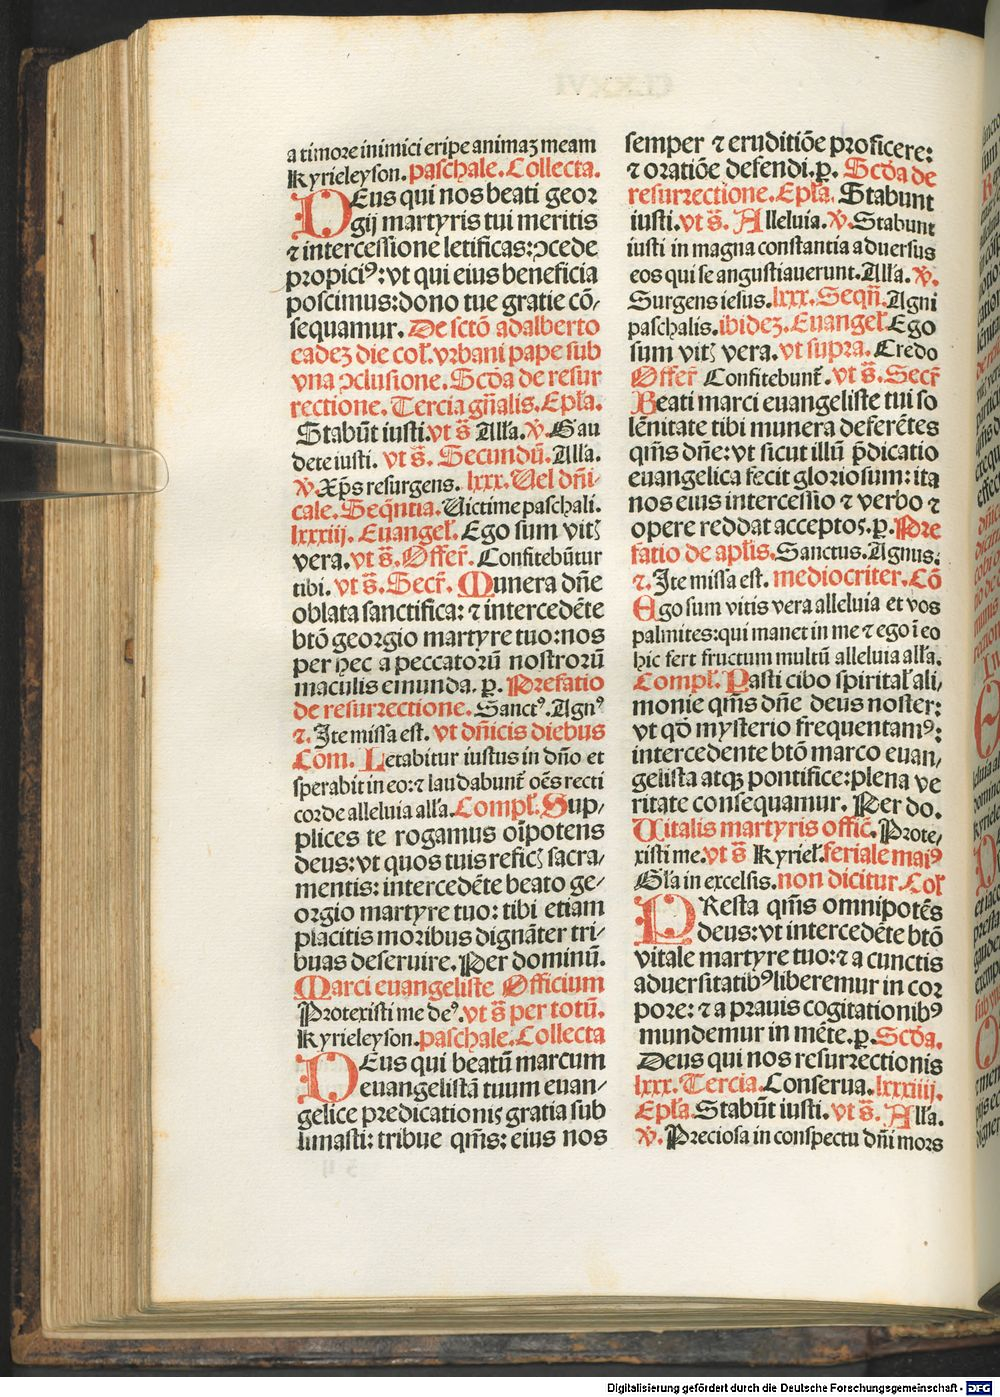 a timore inimici eripe animaꝫ meam
Kyrieleyson. paschale. Collecta.
DEus qui nos beati geor
gij martyris tui meritis
⁊ intercessione letificas: ↄcede
propiciꝰ: vt qui eius beneficia
poscimus: dono tue gratie cō-
sequamur. De sctō adalberto
eadeꝫ die col̕. vrbani pape sub
vna ↄclusione. Scd̄a de resur
rectione. Tercia gn̄alis. Epl̄a.
Stabūt iusti. vt s̄ All̄a. ꝟ. Gau
dete iusti. vt s̄. Secundū. All̄a.
ꝟ. Xp̄s resurgens. lxxx. Uel dn̄i-
cale. Seq̄ntia. Uictime paschali.
lxxxiij. Euangel̕. Ego sum vitꝭ
vera. vt s̄. Offer̄. Confitebūtur
tibi. vt s̄. Secr̄. Munera dn̄e
oblata sanctifica: ⁊ intercedēte
btō georgio martyre tuo: nos
per hec a peccatorū nostrorū
maculis emunda. p. Prefatio
de resurrectione. Sanctꝰ. Agnꝰ
⁊. Ite missa est. vt dn̄icis diebus
Com. Letabitur iustus in dn̄o et
sperabit in eo: ⁊ laudabunt̄ oēs recti
corde alleluia all̄a. Compl̕. Sup-
plices te rogamus oīpotens
deus: vt quos tuis reficꝭ sacra-
mentis: intercedēte beato ge-
orgio martyre tuo: tibi etiam
placitis moribus dignāter tri-
buas deseruire. Per dominū.
Marci euangeliste Officium
Protexisti me deꝰ. vt s̄ per totū.
Kyrieleyson. paschale. Collecta
DEus qui beatū marcum
euangelistā tuum euan-
gelice predicationis gratia sub
limasti: tribue qm̄s: eius nos
semper ⁊ eruditiōe proficere:
⁊ oratiōe defendi. p. Scd̄a de
resurrectione. Epl̄a. Stabunt
iusti. vt s̄. Alleluia. ꝟ. Stabunt
iusti in magna constantia aduersus
eos qui se angustiauerunt. All̄a. ꝟ.
Surgens iesus. lxxx. Seqn̄. Agni
paschalis. ibideꝫ. Euangel̕. Ego
sum vitꝭ vera. vt supra. Credo
Offer̄ Confitebunt̄. vt s̄. Secr̄
Beati marci euangeliste tui so
lēnitate tibi munera deferētes
qm̄s dn̄e: vt sicut illū p̄dicatio
euangelica fecit gloriosum: ita
nos eius intercessio ⁊ verbo ⁊
opere reddat acceptos. p. Pre
fatio de apl̄is. Sanctus. Agnus.
⁊. Ite missa est. mediocriter. Cō
Ego sum vitis vera alleluia et vos
palmites: qui manet in me ⁊ ego ī eo
hic fert fructum multū alleluia all̄a.
Compl̕. Pasti cibo spirital̕ ali-
monie qm̄s dn̄e deus noster:
vt qd̄ mysterio frequentamꝰ:
intercedente btō marco euan-
gelista atqꝫ pontifice: plena ve
ritate consequamur. Per do.
Uitalis martyris offic̄. Prote-
xisti me. vt s̄ Kyriel̕. feriale maiꝰ
Gl̄a in excelsis. non dicitur. Col̕
PResta qm̄s omnipotēs
deus: vt intercedēte btō
vitale martyre tuo: ⁊ a cunctis
aduersitatibꝰ liberemur in cor
pore: ⁊ a prauis cogitationibꝰ
mundemur in mēte. p. Scd̄a.
Deus qui nos resurrectionis
lxxx. Tercia. Conserua. lxxxiiij.
Epl̄a. Stabūt iusti. vt s̄. All̄a.
ꝟ. Preciosa in conspectu dn̄i mors
Digitalisierung gefördert durch die Deutsche Forschungsgemeinschaft - DFG